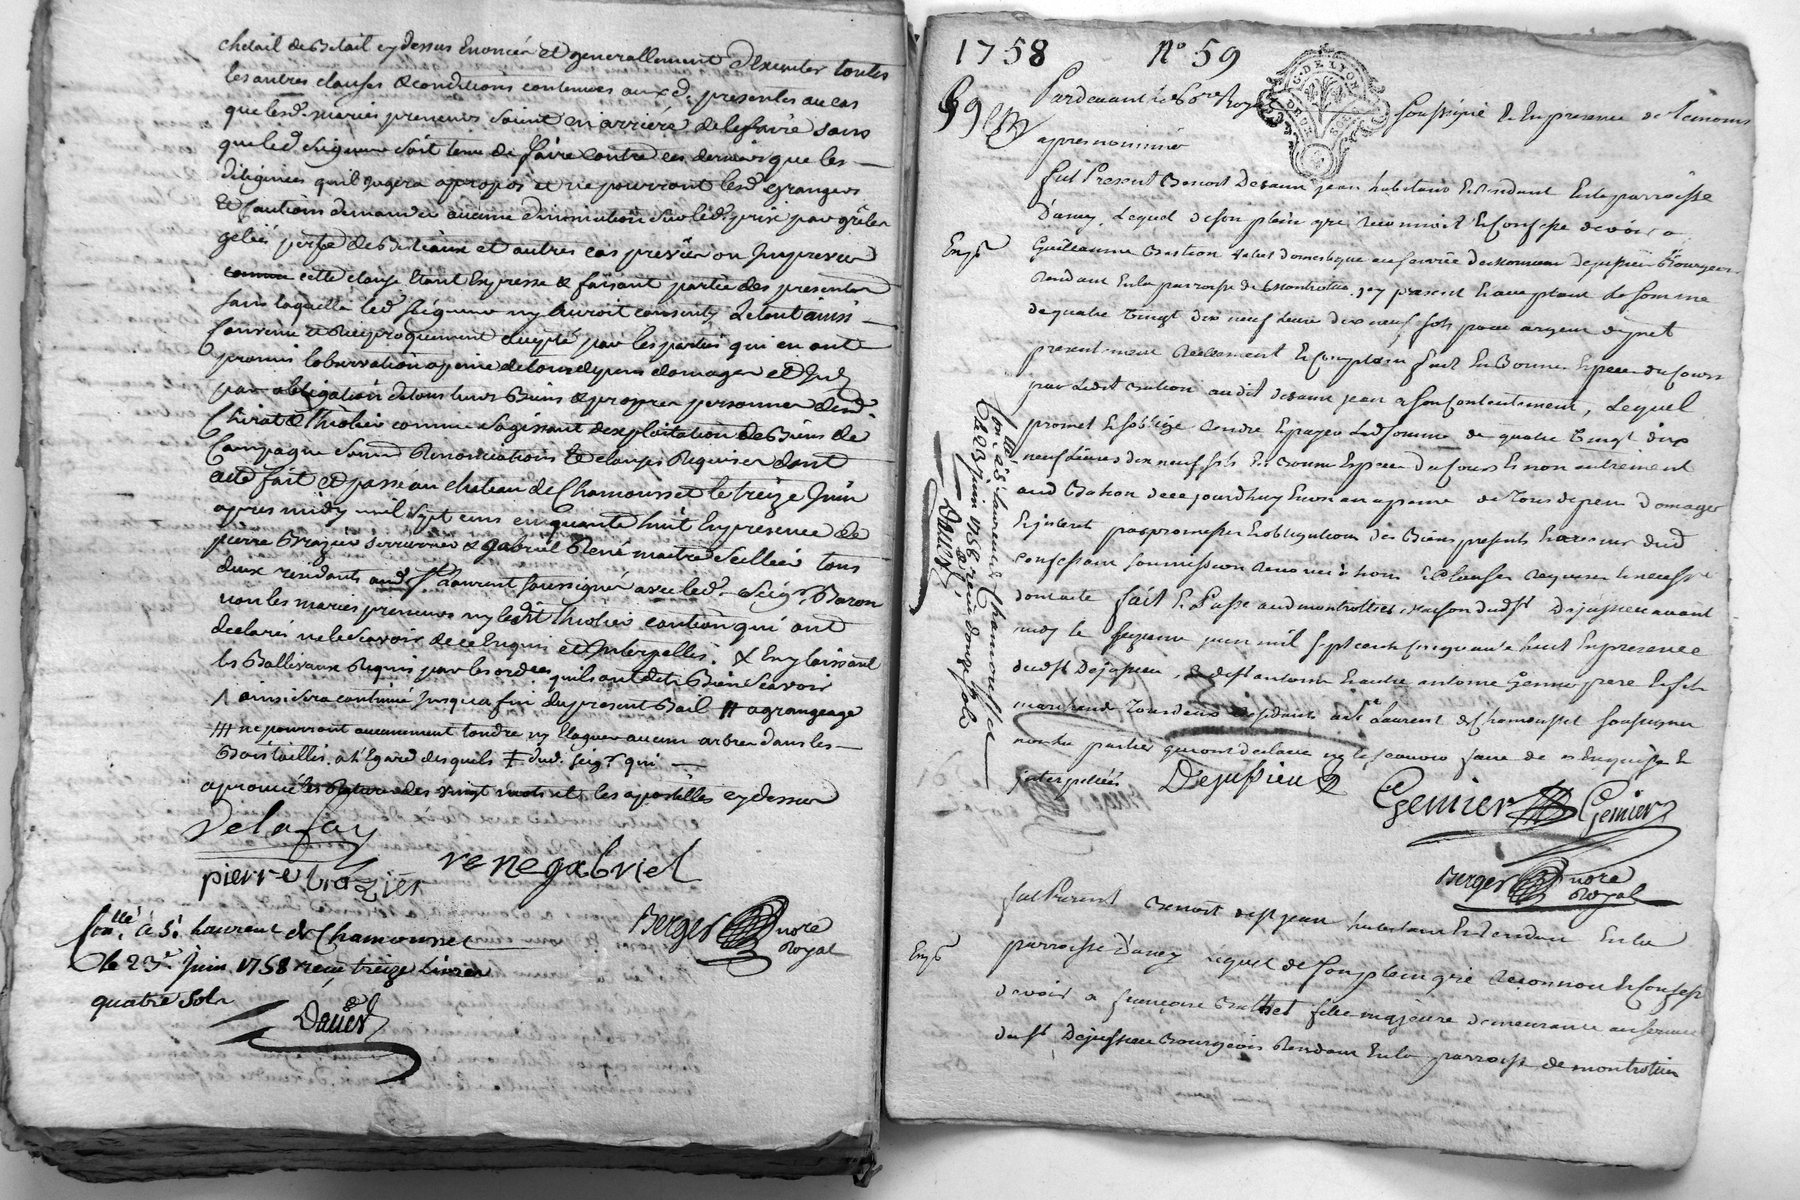 chetail de Betail cy dessus Enoncée et generallement D'Executer toutes
les autres clauses & conditions contenues auxd. presentes au cas
que lesd. mariés preneurs soient en arriere de le faire sans
que led. Seigneur soit tenu de faire contre ces derniers que les
diligences quil Jugera apropos et ne pourront lesd. grangers
& Cautions demander aucune diminution sur led. prix par grêler
gelée perte de Bestiaux et autres cas prevûs ou Imprevus
cette clause Etant Expresse & faisant partie des presentes
sans laquelle led. Seigneur ny Auroit consenty, Letout ainsi
Convenu et Reciproquement accepté par les parties qui en ont
promis l'observation a peine de tous depens domages et
par obligation de tous leurs Biens & propres personnes desd.
Chirat & Thiolier comme s'agissant d'exploitation de Biens de
Campagne Renonciations & clauses Requises dont
acte fait et passé au chateau de Chamousset le treize Juin
apres midy mil sept cens cinquante huit En presence de
pierre Brazier serrurier & gabriel René maitre Sellier tous
deux residants aud. St. Laurent soussignés avec led. Seigr. Baron
non les mariés preneurs ny ledit Thiolier caution qui ont
declarés ne le sçavoir de ce Enquis et Interpellés. & En laissant
les Ballivaux Requis par les ordces quils ont dit Bien Scavoir
ainsi sera continué Jusqu'a fin du present Bail # a grangeage
ne pourront aucunement tondre ny Elaguer aucun arbre dans les
Bois taillis. a l'Egard desquels dud. Seigr. qui
aprouvé la Rature des vingt mots et les apostilles cy dessus
Delafay
pierre brazier renegabriel
Berger nore
Royal
Con.llé a St. Laurent de Chamousset
le 23e. Juin 1758 recu treize Livres
quatre sols
Daver
1758 No 59
59
G. DE LYON
Pardevant le Royal Soussigné & En presence des Temoins
apres nommés
fut Present Benoist Desaint jean habitant & Residant En la parroisse
d'ancy, Lequel de son plein gré reconnoit & Confesse devoir a
Guillaume Bastion Valet domestique au service de monsieur Dejussieu Bourgeois
Residant En la parroisse de Montrotier, icy present & acceptant la somme
de quatre Vingt dix neuf Livres dix neuf sols pour argent de prêt
presentement reellement & Comptant fait En Bonnes Especes du Cours
par Ledit Bastion audit desaint jean a son Contentement, Lequel
promet & s'oblige rendre & payer lad. somme de quatre Vingt dix
neuf Livres dix neuf sols En Bonnes Especes du Cours & non autrement
aud Bastion de ce jourdhuy En un an a peine de Tous depens domages
& interet par promesse & obligation des Biens presents & avenir dud
Confessant soumission renonciations & Clauses requises & necessre
dont acte fait & Passé aud montrottier, maison dudSr. Dejussieu avant
midy le Juin mil sept cents Cinquante huit En presence
dudSr. Dejussieu & de Sr. antoine & autre antoine Gennier pere & fils
marchands Tous deux residants a St. Laurent de Chamousset soussignés
non les parties qui ont declarés ny le sçavoir faire de ce Enquises &
interpellées Dejussieu
Genier Genier
Berger nore
Royal
Con.llé a St. Laurent de Chamousset
le 23 juin 1758 recu douze sols
Daver
fut Present Benoist de St. jean habitant & Residant En la
parroisse d'ancy Lequel de son plein gré reconnoit & Confesse
devoir a françoise Bathet fille majeure demeurante au service
du Sr. Dejussieu Bourgeois Residant En la parroisse de montrotier